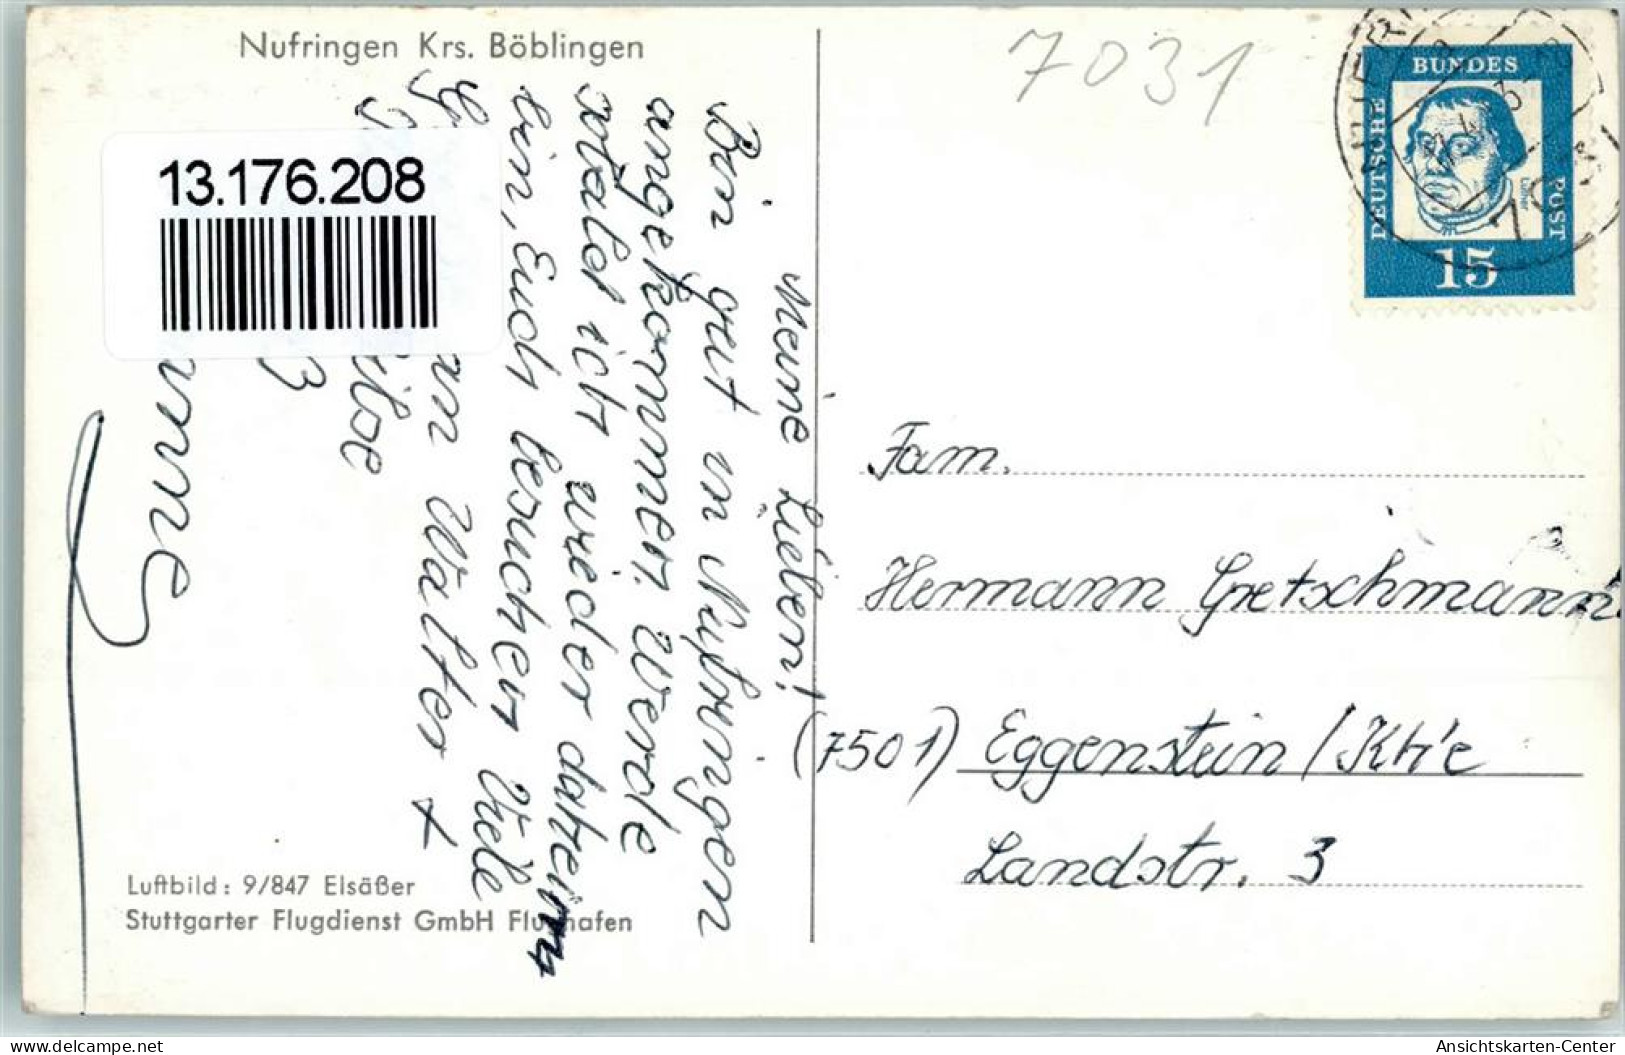 Nufringen Krs. Böblingen
7031
13.176.208
DEUTSCHE
BUNDES
POST
Luther
15
Meine Lieben!
Bin gut in Nufringen
angekommen. Werde
sobald ich wieder daheim
bin, Euch besuchen. Viele
Walter +
Fam.
Hermann Gretschmann
(7501) Eggenstein / Kh'e
Landstr. 3
Luftbild: 9/847 Elsäßer
Stuttgarter Flugdienst GmbH Flughafen
delcampe.net
MARYVONNE
Ansichtskarten-Center